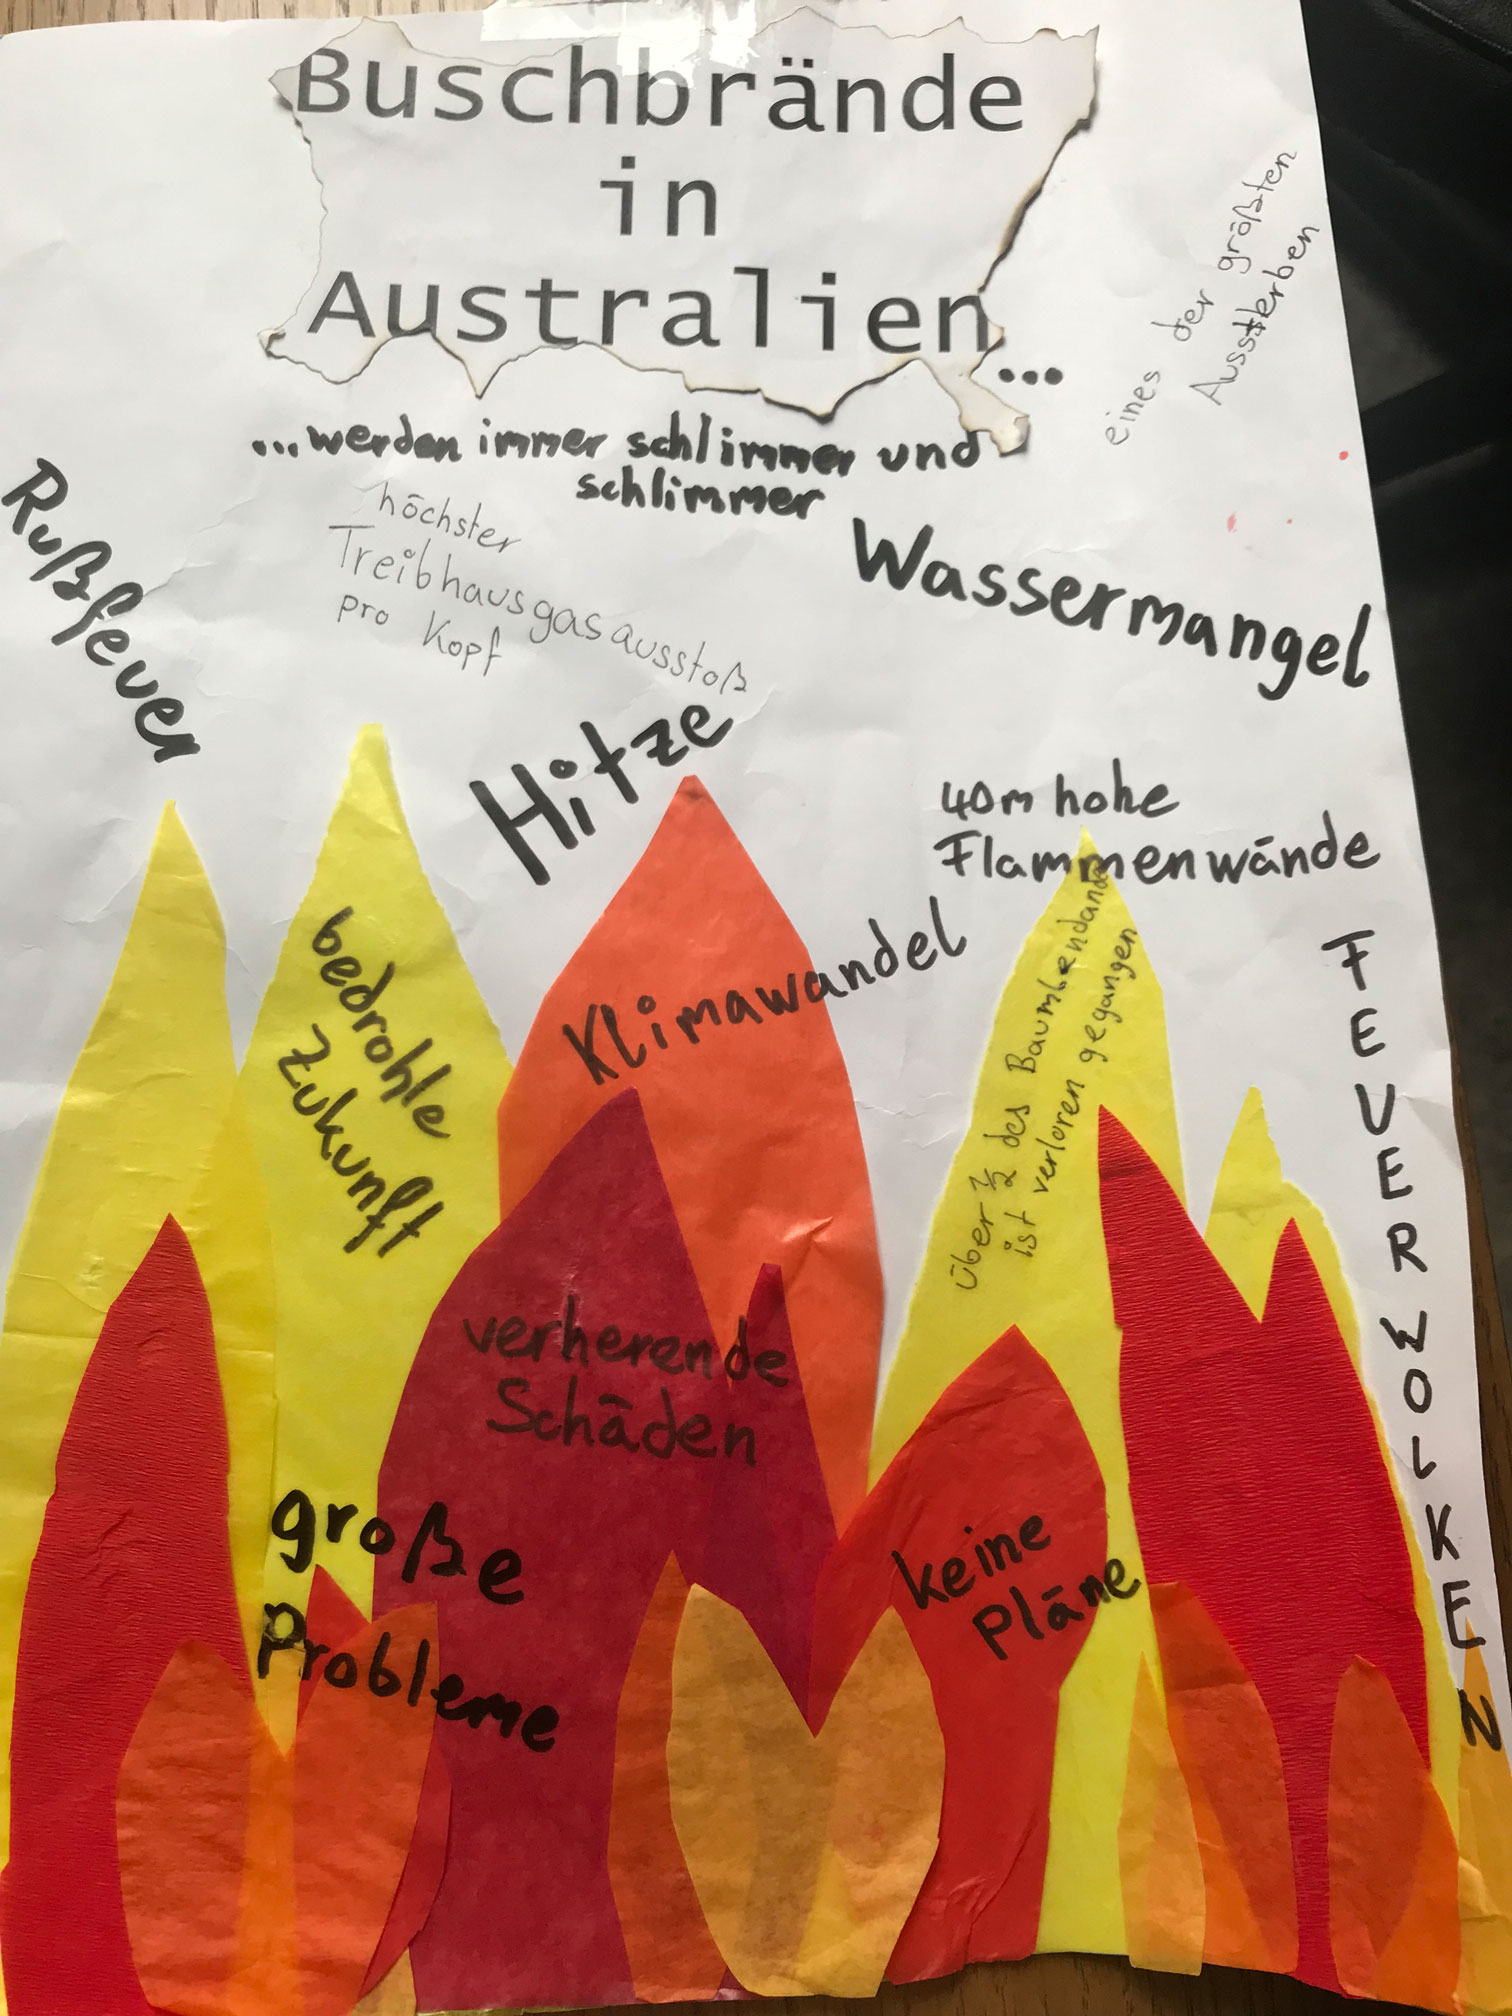 Buschbrände
in
Australien...
...werden immer schlimmer und
schlimmer
eines der größten
Aussterben
Rußfeuer
höchster
Treibhausgasausstoß
pro Kopf
Wassermangel
Hitze
40m hohe
Flammenwände
bedrohle
Zukunft
Klimawandel
über 1/2 des Baumbendands
ist verloren gegangen
FEUERWOLKEN
verherende
Schäden
große
Probleme
keine
Pläne